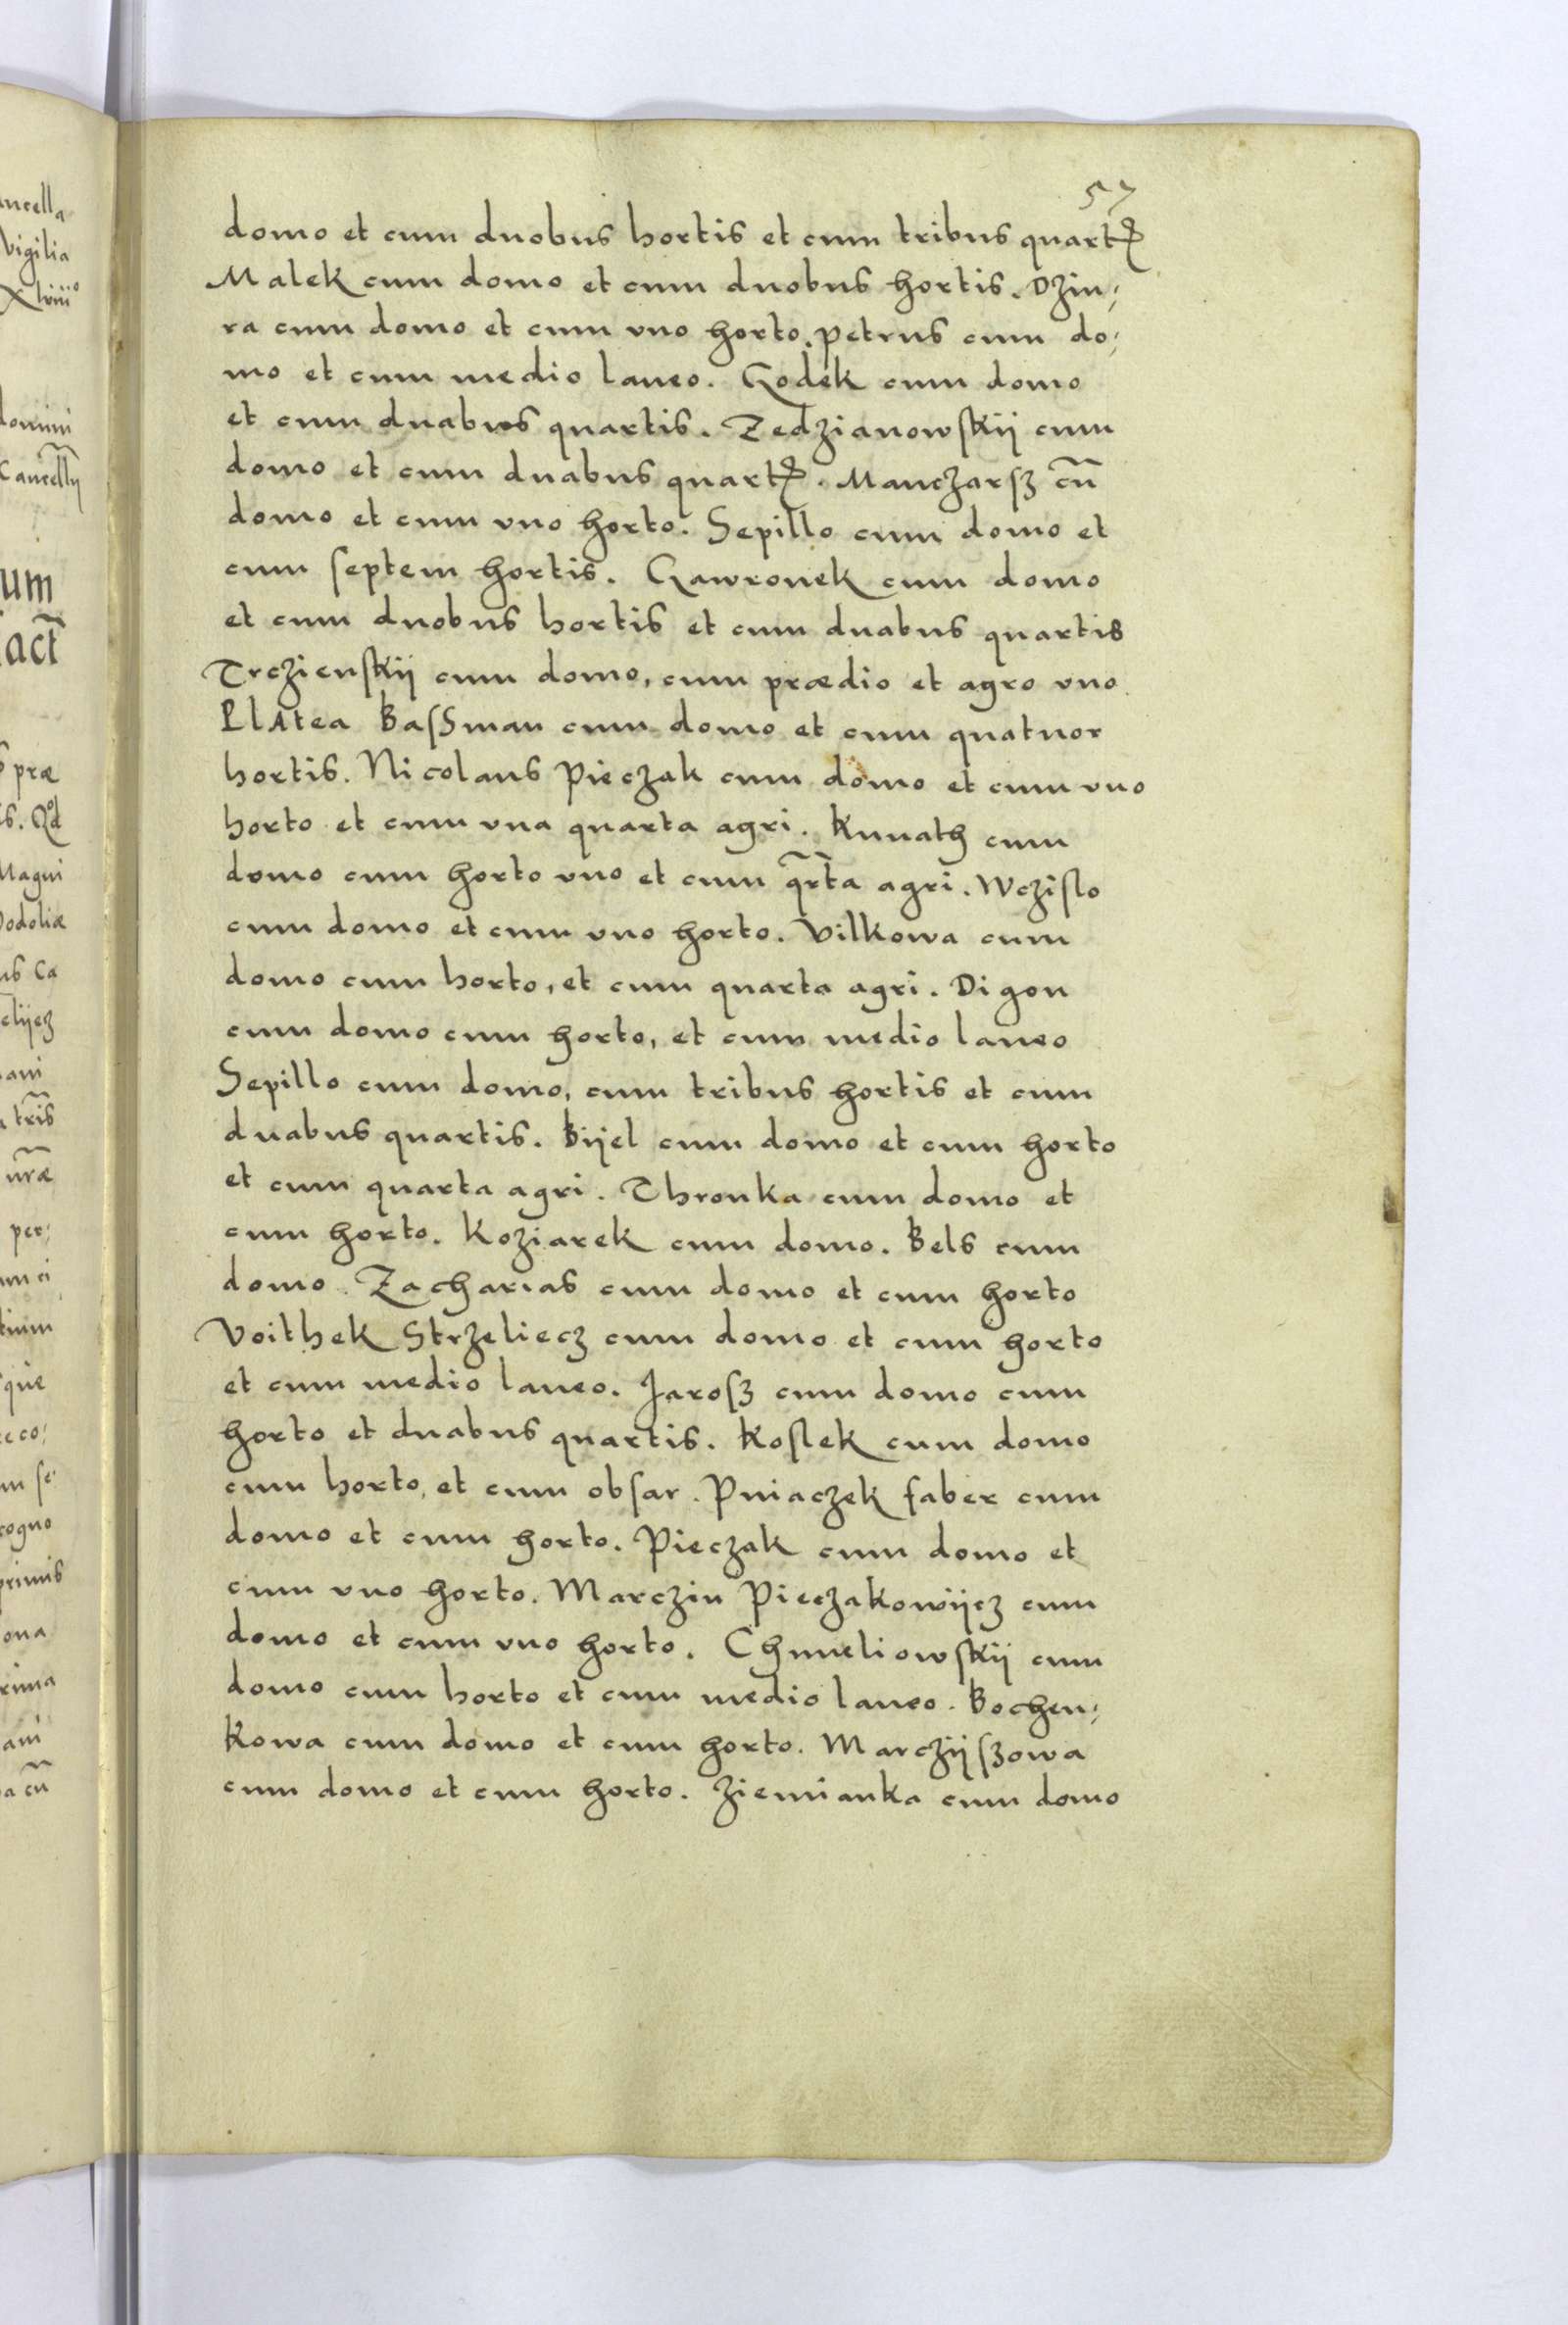 57
domo et cum duobus hortis et cum tribus quartꝭ
Malek cum domo et cum duobus hortis. Dziu⸗
ra cum domo et cum vno horto. petrus cum do⸗
mo et cum medio laneo. Godek cum domo
et cum duabus quartis. Zedzianowskij cum
domo et cum duabus quartꝭ. Manczarſz cū
domo et cum vno horto. Sepillo cum domo et
cum ſeptem hortis. Gawronek cum domo
et cum duobus hortis et cum duabus quartis
Trczienſkij cum domo, cum prædio et agro vno
Platea Baſſman cum domo et cum quatuor
hortis. Nicolaus Pieczak cum domo et cum vno
horto et cum vna quarta agri. Kunath cum
domo cum horto vno et cum qr̄ta agri. Wcziſlo
cum domo et cum vno horto. Vilkowa cum
domo cum horto, et cum quarta agri. Digon
cum domo cum horto, et cum medio laneo
Sepillo cum domo, cum tribus hortis et cum
duabus quartis. Bijel cum domo et cum horto
et cum quarta agri. Thronka cum domo et
cum horto. Koziarek cum domo. Bels cum
domo. Zacharias cum domo et cum horto
Voithek Strzeliecz cum domo et cum horto
et cum medio laneo. Jaroſz cum domo cum
horto et duabus quartis. Koſlek cum domo
cum horto, et cum obſar. Pniaczek faber cum
domo et cum horto. Pieczak cum domo et
cum vno horto. Marczin Pieczakowijcz cum
domo et cum vno horto. Chmeliowſkij cum
domo cum horto et cum medio laneo. Bochen⸗
kowa cum domo et cum horto. Marczijſzowa
cum domo et cum horto. Ziemianka cum domo